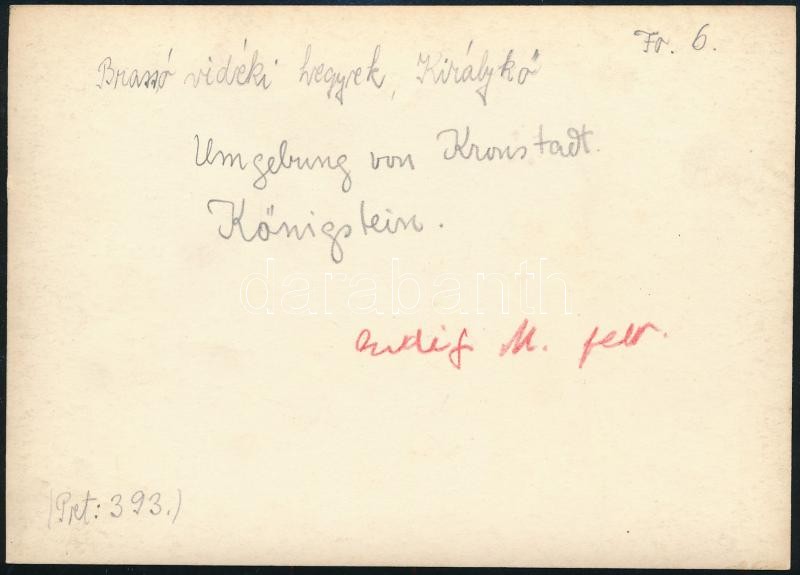 Fo. 6.
Brassó vidéki hegyek, Királykő
Umgebung von Kronstadt.
Königstein.
darabanth
M. felv.
(Pret: 393.)